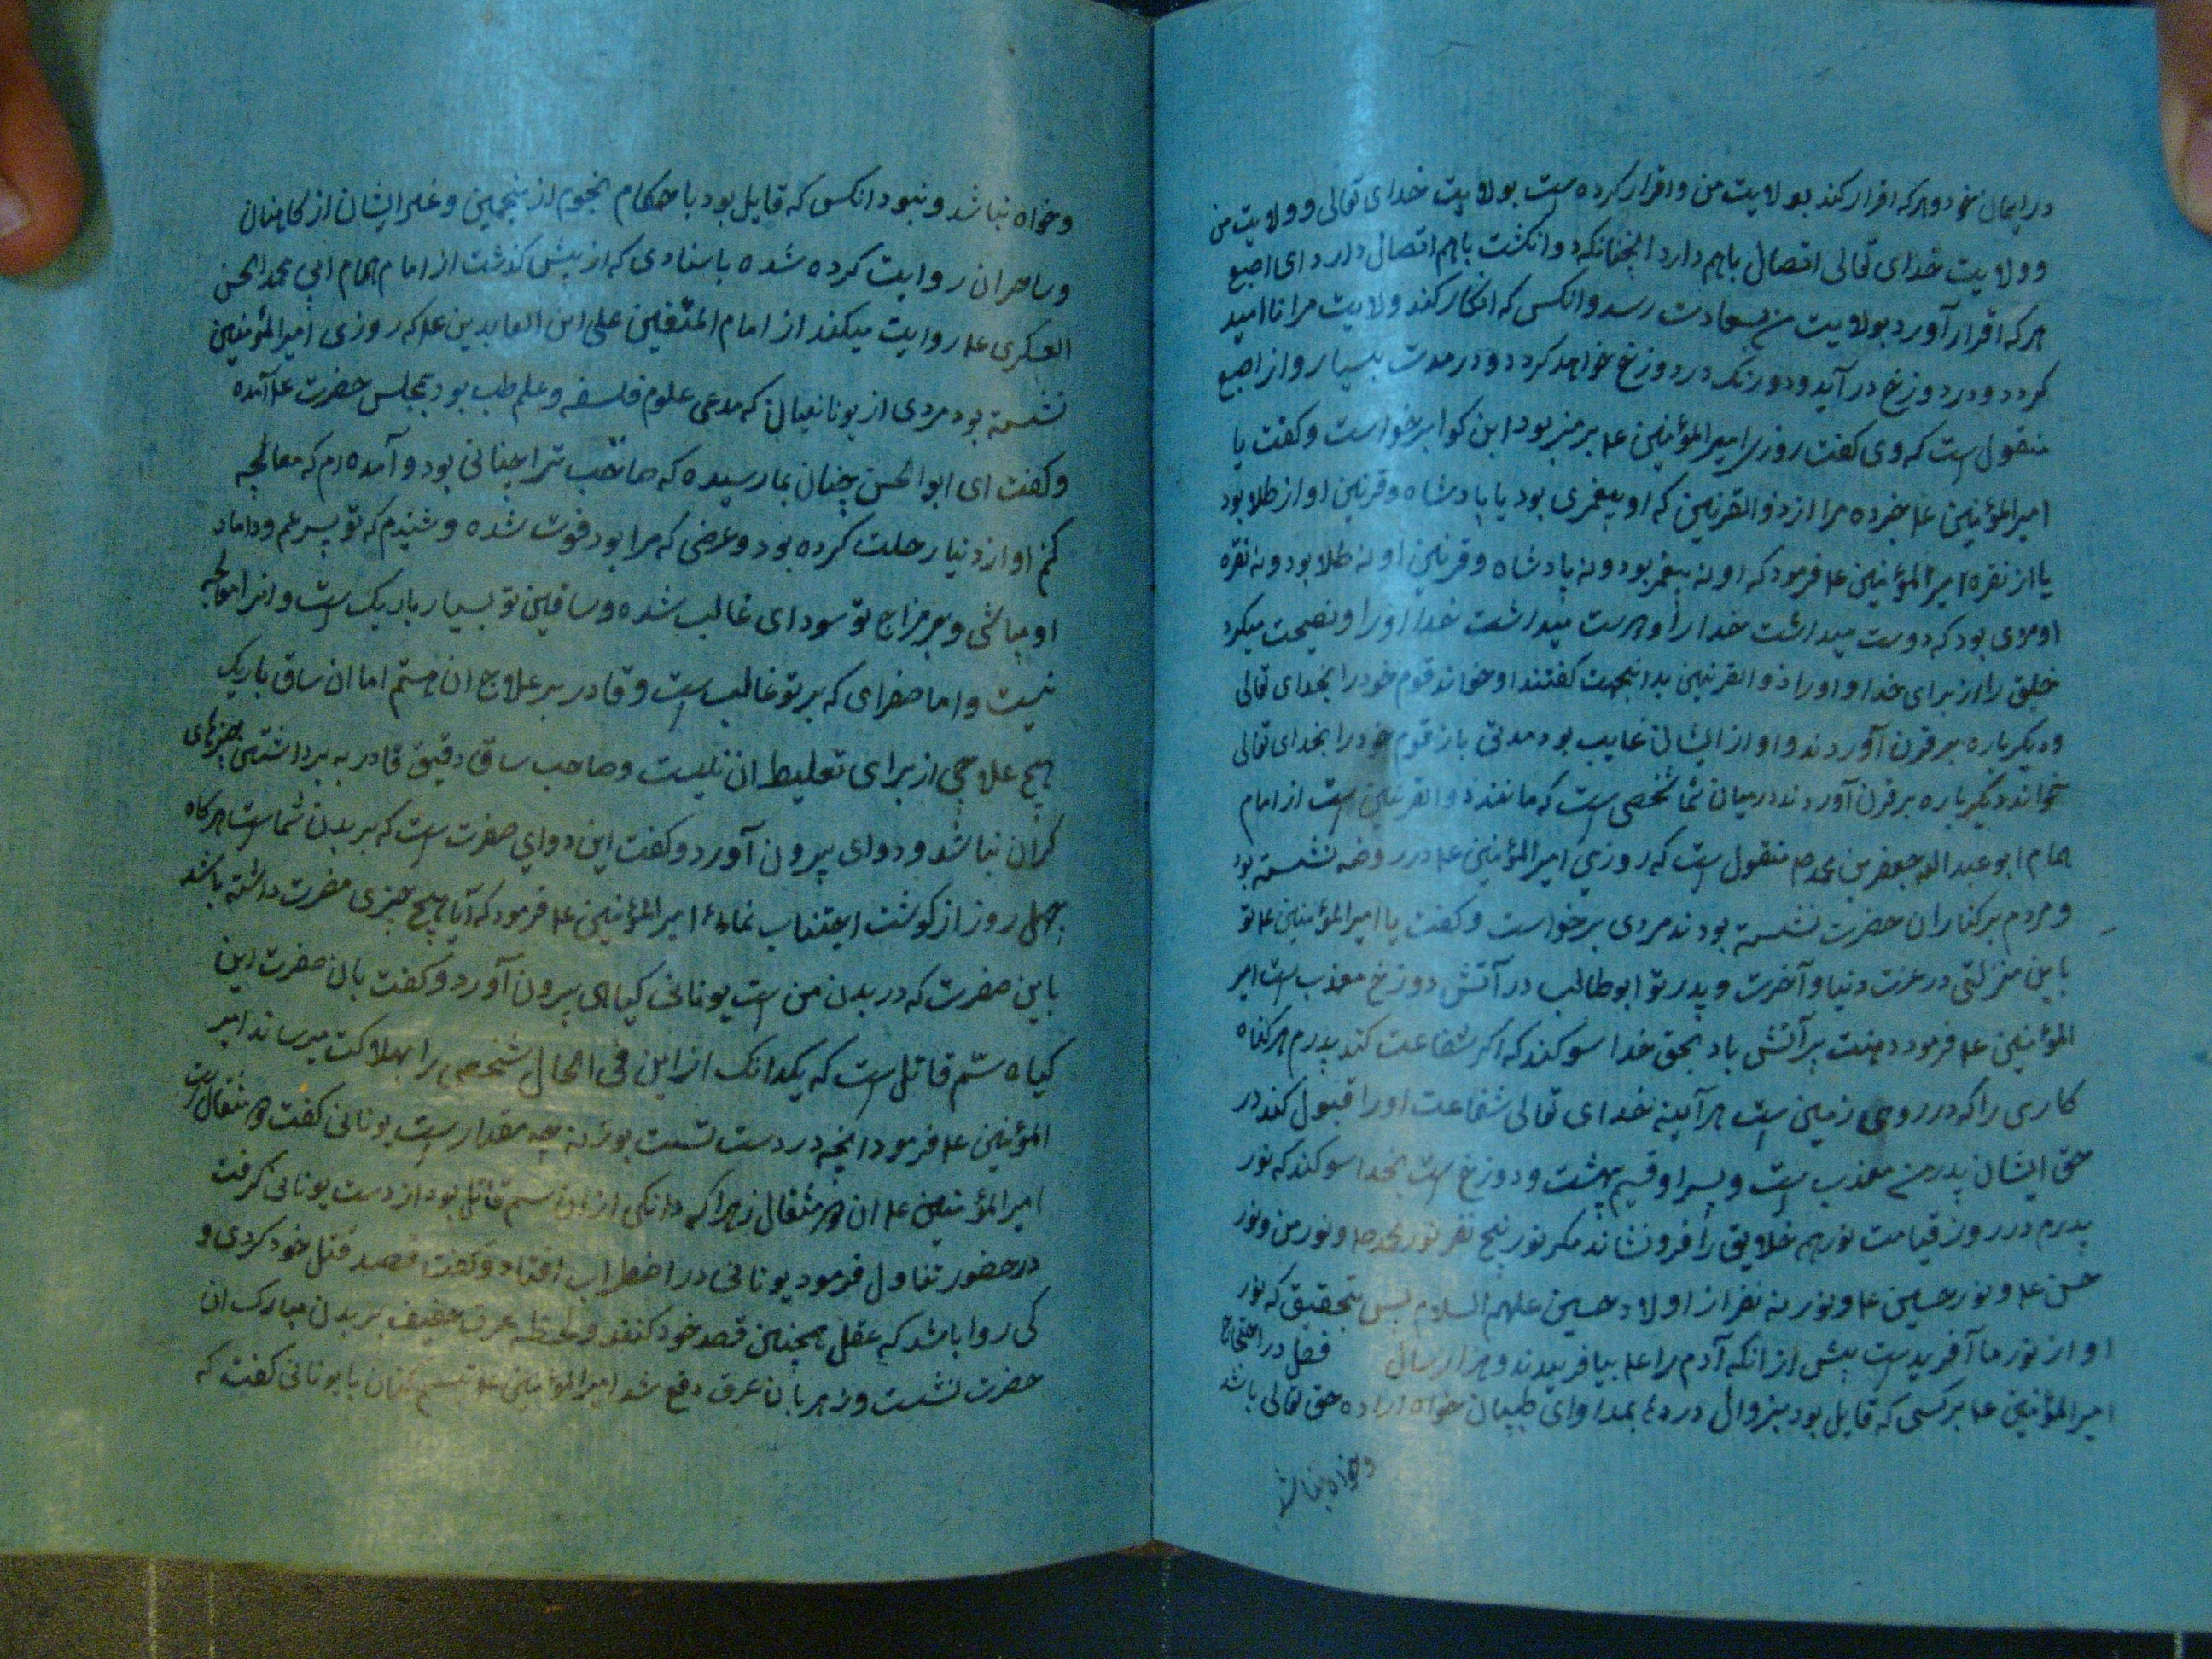 در ایمان خود و هر که اقرار کند بولایت من و اقرار کرده است بولایت خدای تعالی و ولایت من
و ولایت خدای تعالی اتصال باهم دارد انچنانکه دو انکشت باهم اتصال دارد ای اصبغ
هر که اقرار آورد بولایت من بسعادت رسد و انکس که انکار کند ولایت مرا نا امید
کردد و در دوزخ در آید و درنک در دوزخ خواهد کرد و در مدت بسیار و از اصبغ
منقول است که وی کفت روزی امیر المؤمنین ع بر منبر بود ابن کوا برخواست و کفت یا
امیر المؤمنین ع خبر ده مرا از ذو القرنین که او پیغمری بود یا پادشاه و قرنین او از طلا بود
یا از نقره امیر المؤمنین ع فرمود که او نه پیغمر بود و نه پادشاه و قرنین او نه طلا بود و نه نقره
او مردی بود که دوست میداشت خدا را و دوست میداشت خدا او را و نصیحت میکرد
خلق را از برای خدا و او را ذو القرنین بدانجهت کفتند او خواند قوم خود را بخدای تعالی
و دیکرباره بر قرن آوردند و او از ایشان غایب بود مدتی باز قوم خود را بخدای تعالی
خواند دیکرباره بر قرن آوردند در میان شما شخصی است که مانند ذو القرنین است از امام
همام ابو عبد الله جعفر بن محمد ص منقول است که روزی امیر المؤمنین ع در روضه نشسته بود
و مردم بر کنار ان حضرت نشسته بودند مردی برخواست و کفت یا امیر المؤمنین ع تو
باین منزلتی در عزت دنیا و آخرت و پدر تو ابو طالب در آتش دوزخ معذب است امیر
المؤمنین ع فرمود دهنت پر آتش باد بحق خدا سوکند که اکر شفاعت کند پدرم هر کناه
کاری را که در روی زمین است هر آینه خدای تعالی شفاعت او را قبول کند در
حق ایشان پدر من معذب است و پسر او قسیم بهشت و دوزخ است بخدا سوکند که نور
پدرم در روز قیامت نور همه خلایق را فرو نشاند مکر نور پنج نفر نور محمد ص و نور من و نور
حسن ع و نور حسین ع و نور نه نفر از اولاد حسین علیهم السلام پس بتحقیق که نور
او از نور ما آفریدست پیش از انکه آدم را ع بیافریدند و هزار سال فصل در احتجاج
امیر المؤمنین ع بر کسی که قایل بود بزوال درد بمداوای طبیبان خواه اراده حق تعالی باشد
و خواه نباشد
و خواه نباشد و نبود انکس که قایل بود باحکام نجوم از منجمین و غیر ایشان از کاهنان
و ساحران روایت کرده شده باسنادی که از پیش کذشت از امام همام ابی محمد الحسن
العسکری ع روایت میکند از امام المتقین علی ابن العابدین ع که روزی امیر المؤمنین
نشسته بود مردی از یونانیان که مدعی علوم فلسفه و علم طب بود بمجلس حضرت ع آمده
و کفت ای ابو الحسن چنان بما رسیده که صاحب ترا جنانی بود و آمده ام که معالجه
کنم او از دنیا رحلت کرده بود و غرضی که مرا بود فوت شده و شنیدم که تو پسر عم و داماد
او میباشی و بر مزاج تو سودای غالب شده و ساقین تو بسیار باریک است و انرا معالجه
نیست و اما صفرای که بر تو غالب است و قادر بر علاج ان هستم اما ان ساق باریک
هیچ علاجی از برای تغلیط ان نیست و صاحب ساق دقیق قادر به برداشتن چیزهای
کران نباشد و دوای بیرون آورد و کفت این دوای صفرت است که بر بدن شماست هرکاه
چهل روز از کوشت اجتناب نمائی امیر المؤمنین ع فرمود که آیا هیچ چیزی مضرت داشته باشد
باین صفرت که در بدن من است یونانی کیاهی بیرون آورد و کفت بان صفرت این
کیاه سم قاتل است که یکدانک از این فی الحال شخصی را بهلاکت میرساند امیر
المؤمنین ع فرمود انچه در دست تست بوزن چه مقدار است یونانی کفت دو مثقال است
امیر المؤمنین ع ان دو مثقال زهرا که دانکی از ان سم قاتل بود از دست یونانی کرفت
در حضور تناول فرمود یونانی در اضطراب افتاد و کفت قصد قتل خود کردی و
کی روا باشد که عقل همچنین قصد خود کنند و لحظه عرق خفیف بر بدن مبارک ان
حضرت نشست و زهر بان عرق دفع شد امیر المؤمنین ع تبسم کنان با یونانی کفت که